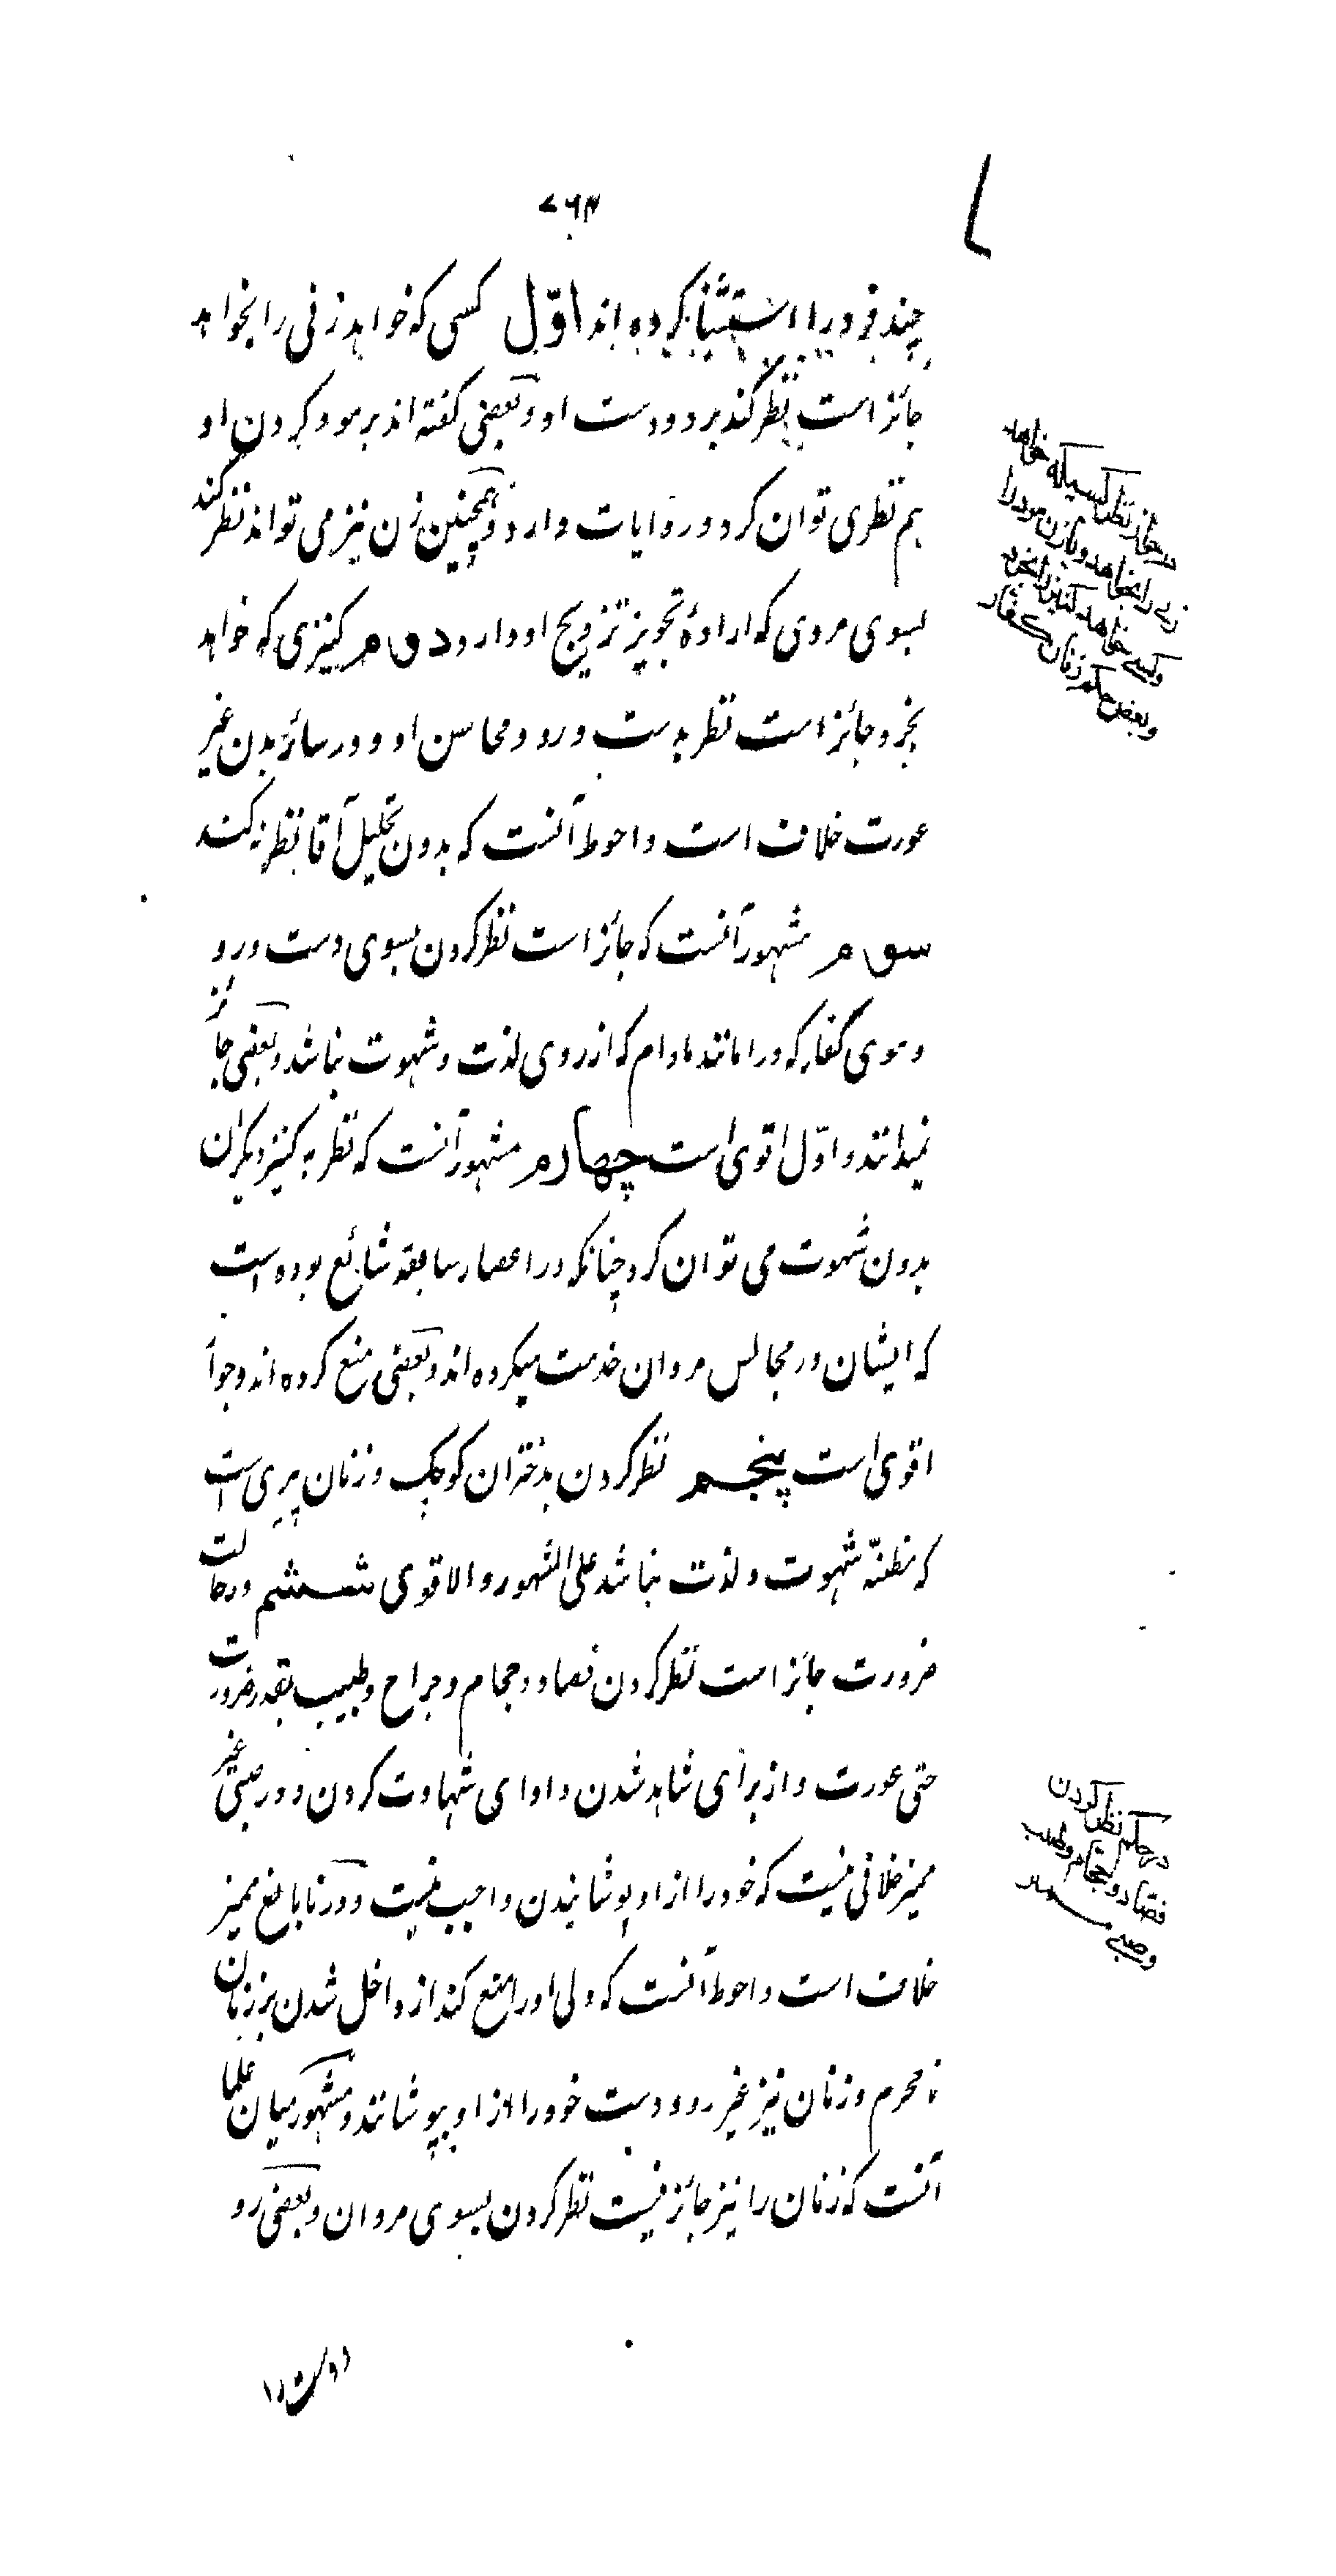 ۷۶۴
چند فرد را استثنا کرده اند اوّل کسی که خواهد زنی را بخواهد
جائز است نظر کند برو و دست او و بعضی گفته اند بر مو و کردن او
هم نظری توان کرد و روایات وارد و همچنین زن نیز می تواند نظر کند
بسوی مردی که ارادهٔ تجویز تزویج او دارد دوم کنیزی که خواهد
بخرد جائز است نظر بدست و رو و محاسن او و در سائر بدن غیر
عورت خلاف است و احوط آنست که بدون تحلیل آقا نظر نکند
سوم مشهور آنست که جائز است نظر کردن بسوی دست و رو
و موی کفار که در امانند مادام که از روی لذت و شهوت نباشد و بعضی جائز
نمیدانند و اوّل اقوی است چهارم مشهور آنست که نظر به کنیز دیکران
بدون شهوت می توان کرد چنانکه در اعصار سابقه شائع بوده است
که ایشان در مجالس مردان خدمت میکرده اند و بعضی منع کرده اند و جواز
اقوی است پنجم نظر کردن بدختران کوچک و زنان پیری است
که مظنّه شهوت و لذت نباشد علی المشهور و الاقوی ششم در حالت
ضرورت جائز است نظر کردن فصاد و حجام و جراح و طبیب بقدر ضرورت
حتی عورت و از برای شاهد شدن و ادای شهادت کردن و در صبی غیر
ممیز خلافی نیست که خود را از او پوشانیدن واجب نیست و در نابالغ ممیز
خلاف است و احوط آنست که ولی او را منع کند از داخل شدن بر زنان
نامحرم و زنان نیز غیر رو و دست خود را از او بپوشانند و مشهور میان علما
آنست که زنان را نیز جائز نیست نظر کردن بسوی مردان و بعضی رو
و دست را
در جواز نظر کسیکه خواهد
زنی را بخواهد و یا زن مرد را
و کسی خواهد کنیز را بخرد
و بعض حکم زنان کفار
در حکم نظر کردن
فصّاد و حجام و طبیب
و صبی